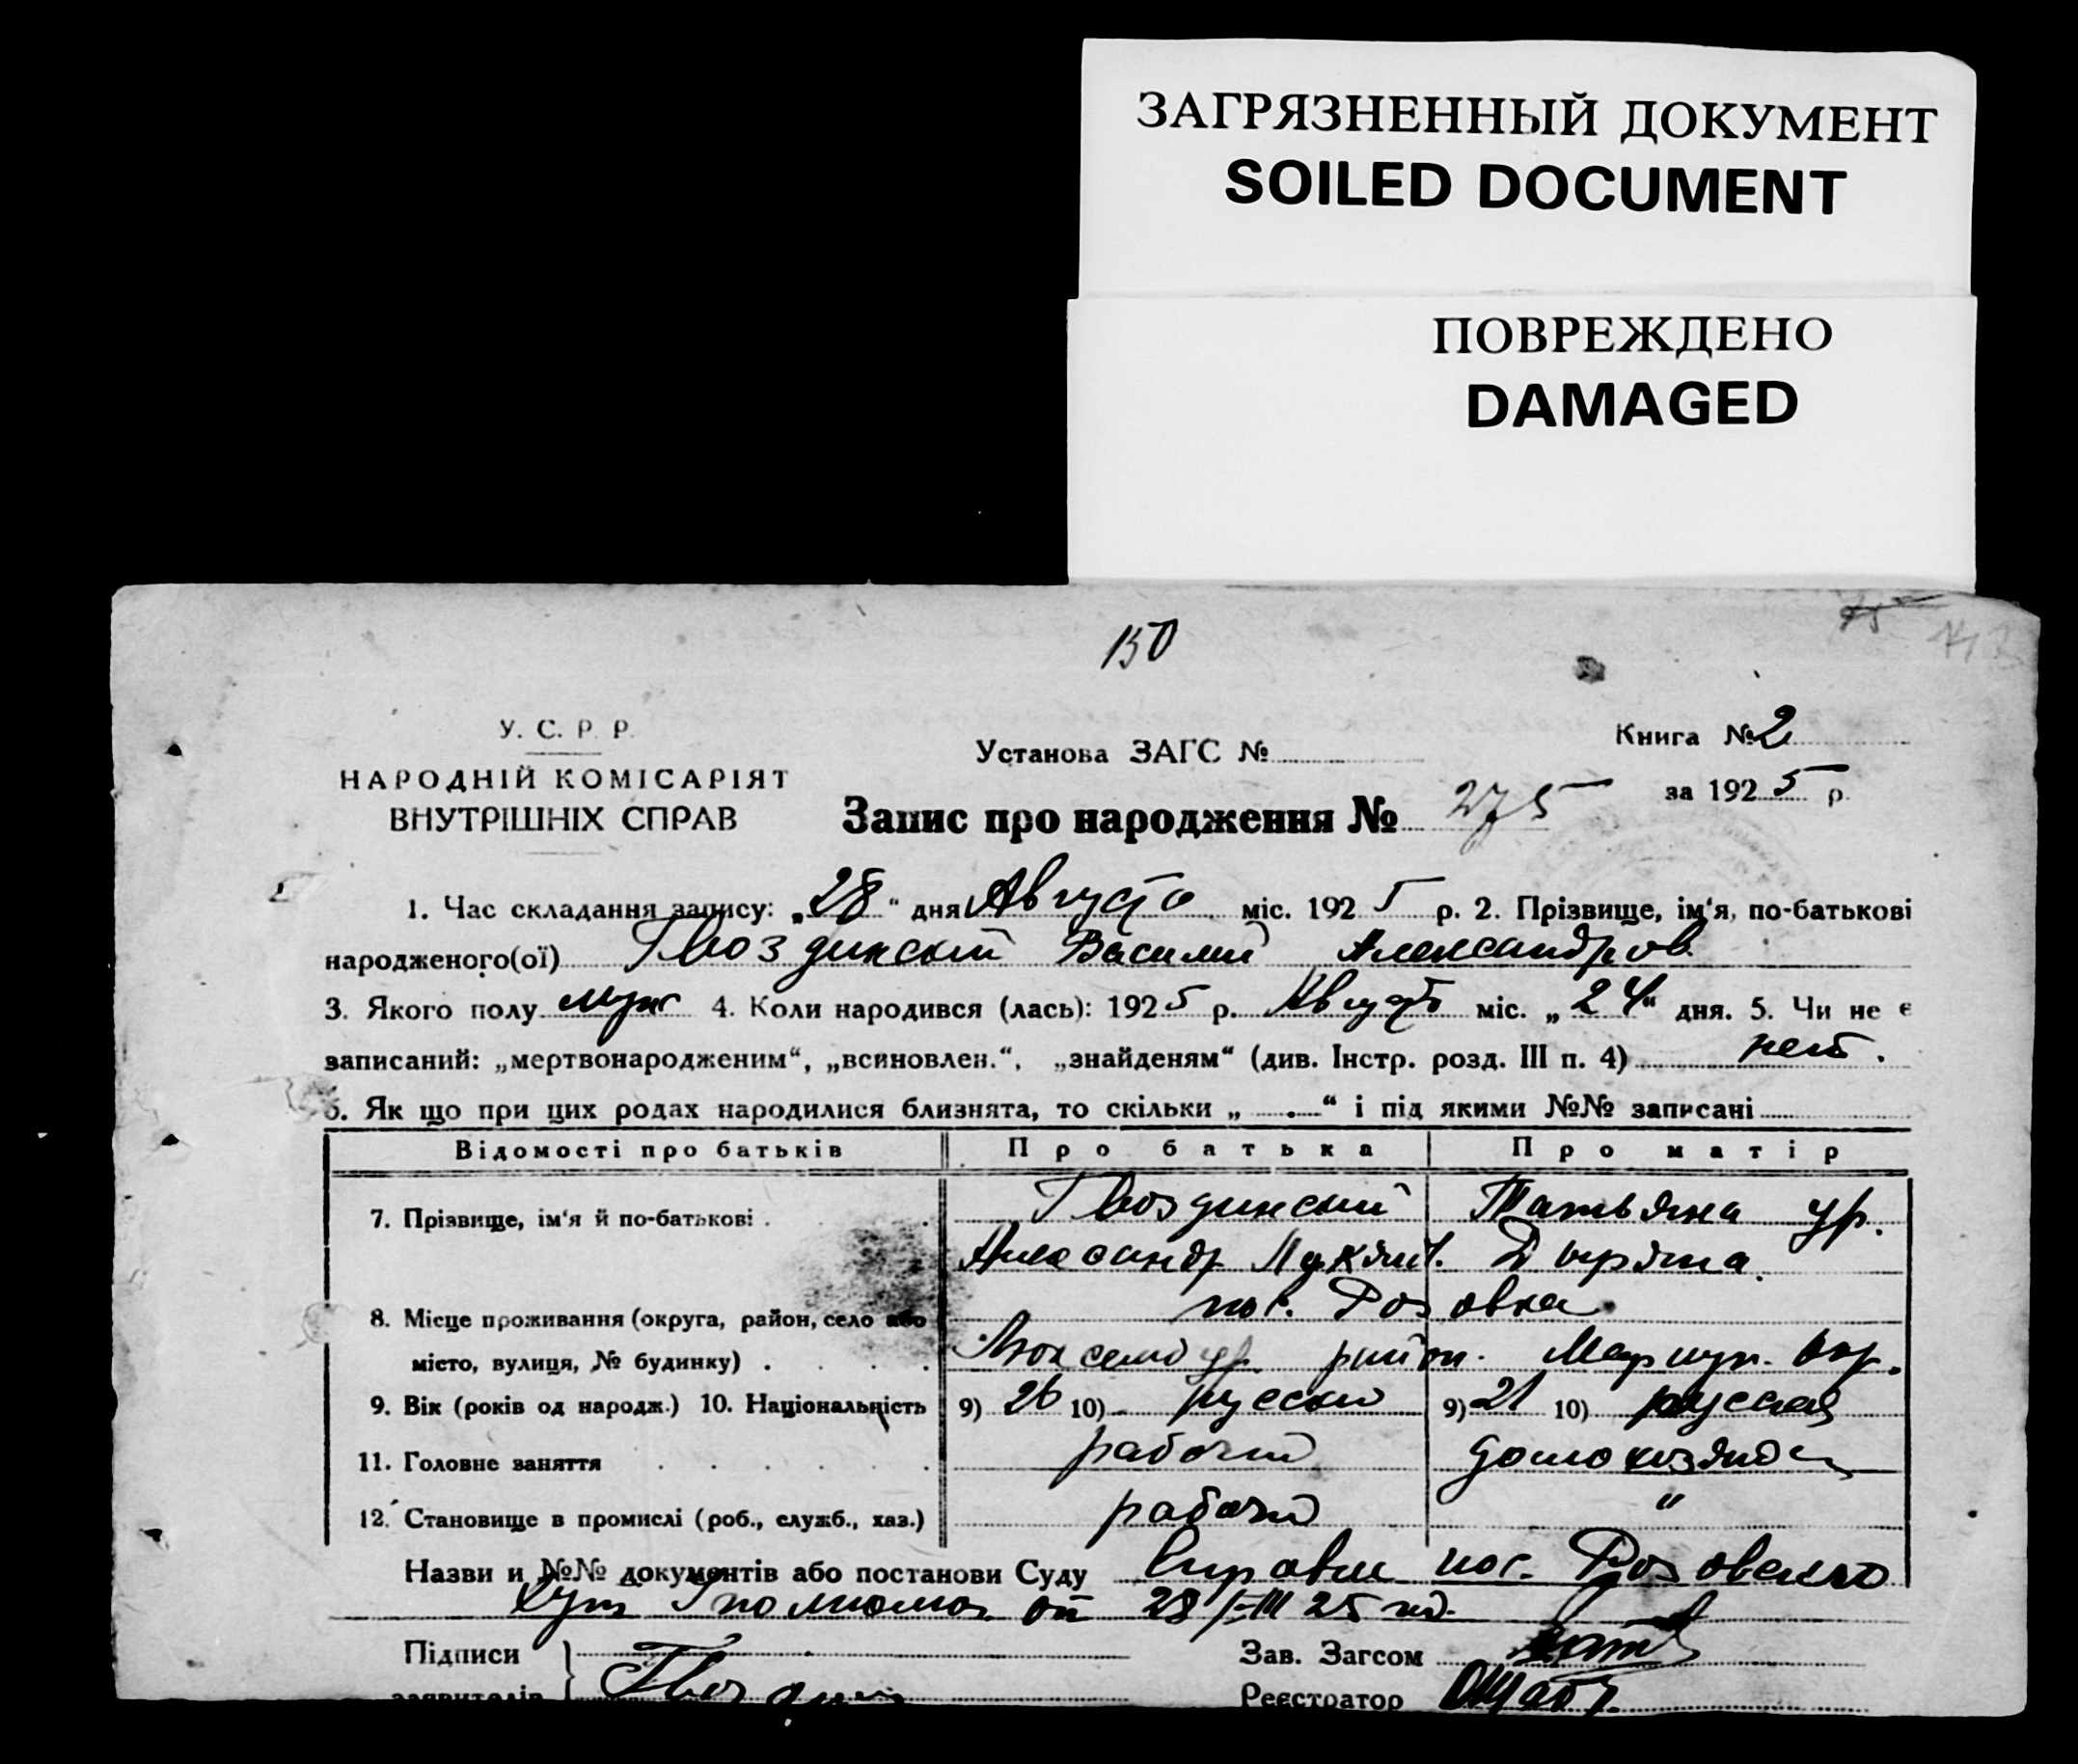 ЗАГРЯЗНЕННЫЙ ДОКУМЕНТ
SOILED DOCUMENT
ПОВРЕЖДЕНО
DAMAGED
150
У. С. Р. Р.
НАРОДНІЙ КОМІСАРІЯТ
ВНУТРІШНІХ СПРАВ
Установа ЗАГС №
Книга № 2
за 1925 р.
Запис про народження № 275
1. Час складання запису: „28“ дня Августа міс. 1925 р. 2. Прізвище, ім‘я, по-батькові
народженого(ої) Гвоздинский Василий Александров
3. Якого полу муж 4. Коли народився (лась): 1925 р. Август міс. „24“ дня. 5. Чи не є
записаний: „мертвонародженим“, „всиновлен.“, „знайденям“ (див. Інстр. розд. III п. 4) нет.
6. Як що при цих родах народилися близнята, то скільки „ — “ і під якими №№ записані
Відомості про батьків Про батька Про матір
7. Прізвище, ім‘я й по-батькові . Гвоздинский Татьяна ур.
Александр
пос. Розовка
8. Місце проживання (округа, район, село або
місто, вулиця, № будинку) . район. Мариуп. окр.
9. Вік (років од народж.) 10. Національність 9) 26 10) русский 9) 21 10) русская
11. Головне заняття рабочий домохозяйка
12. Становище в промислі (роб., служб., хаз.) рабочий "
Назви и №№ документів або постанови Суду Справка пос. Розовского
от 28/VIII 25 год.
Підписи
заявителів Гвоздин
Зав. Загсом
Реєстратор